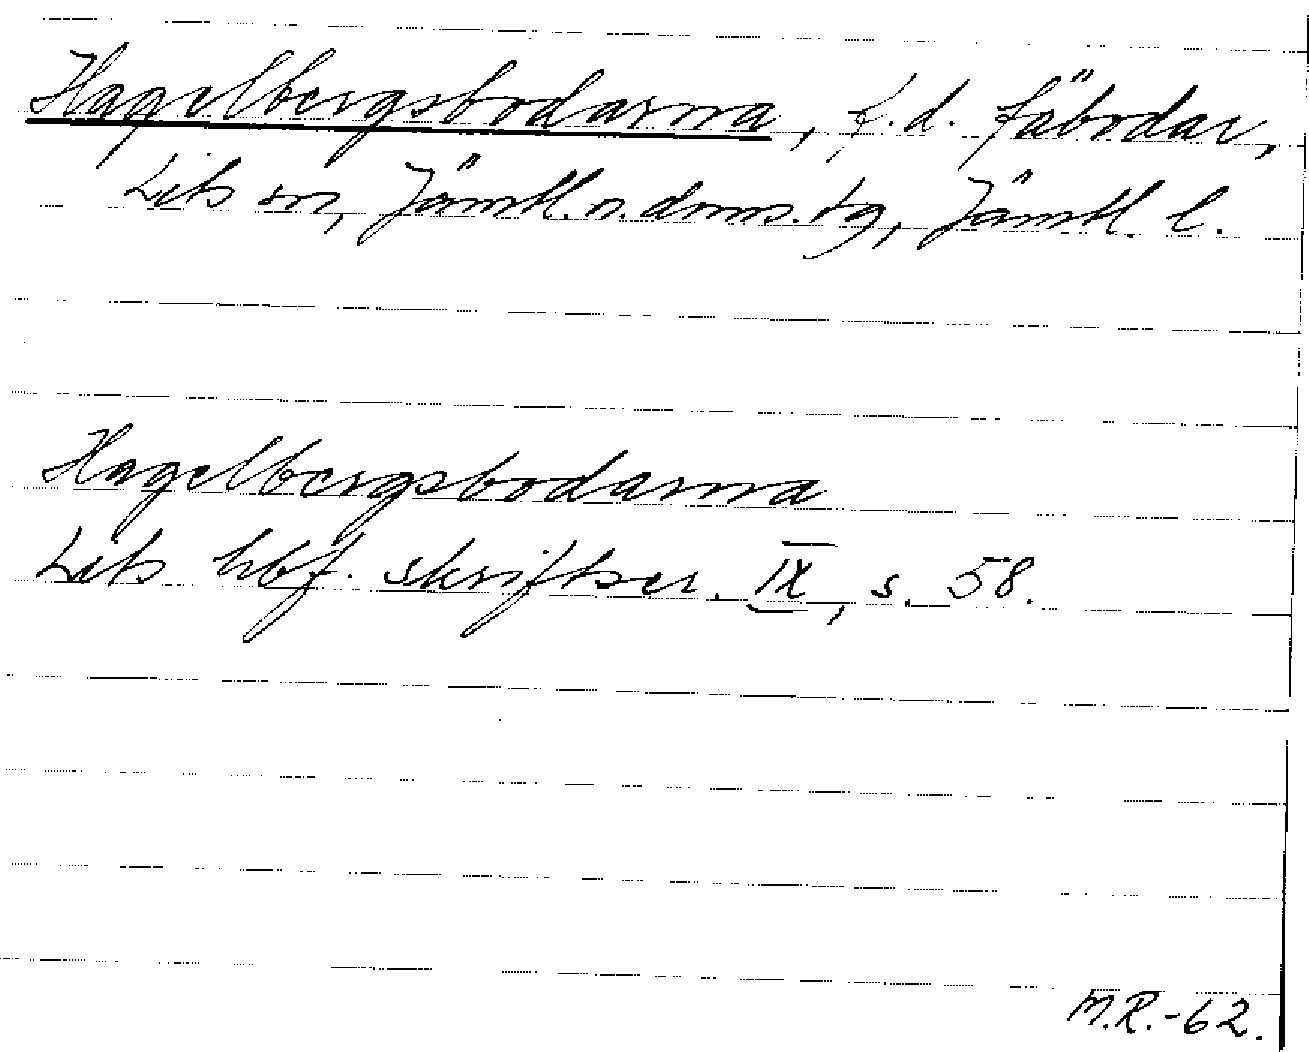 Hagelbergsbodarna, f.d. fäbodar,
Lits sn, Jämtl. n. doms. tg, Jämtl. l.
Hagelbergsbodarna
Lits hbf. skriftser. IX, s. 58.
M.R.-62.